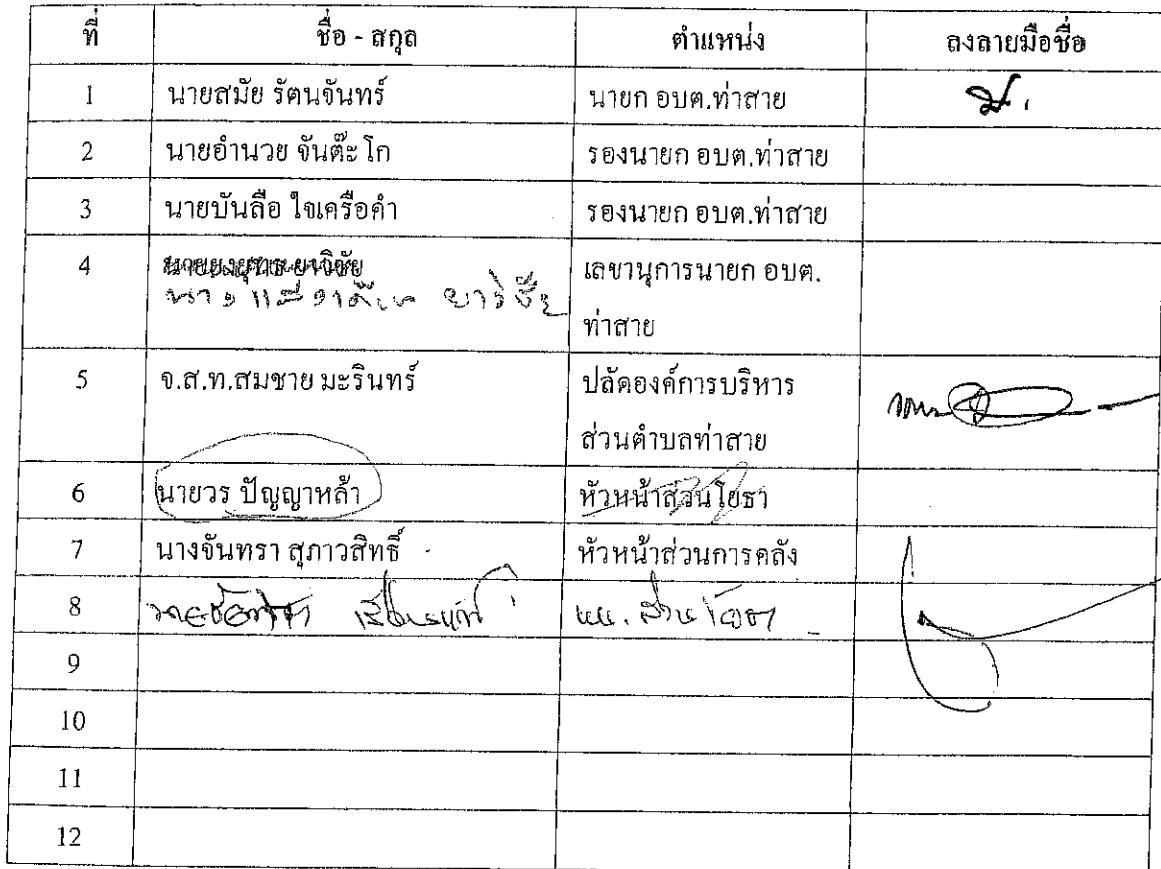 ที่ ชื่อ - สกุล ตำแหน่ง ลงลายมือชื่อ
1 นายสมัย รัตนจันทร์ นายก อบต.ท่าสาย
2 นายอำนวย จันต๊ะโก รองนายก อบต.ท่าสาย
3 นายบันลือ ใจเครือคำ รองนายก อบต.ท่าสาย
4 เลขานุการนายก อบต.
นาง ยาวิชัย
ท่าสาย
5 จ.ส.ท.สมชาย มะรินทร์ ปลัดองค์การบริหาร
ส่วนตำบลท่าสาย
6 นายวร ปัญญาหล้า หัวหน้าส่วนโยธา
7 นางจันทรา สุภาวสิทธิ์ หัวหน้าส่วนการคลัง
8 หน.ส่วนโยธา
9
10
11
12